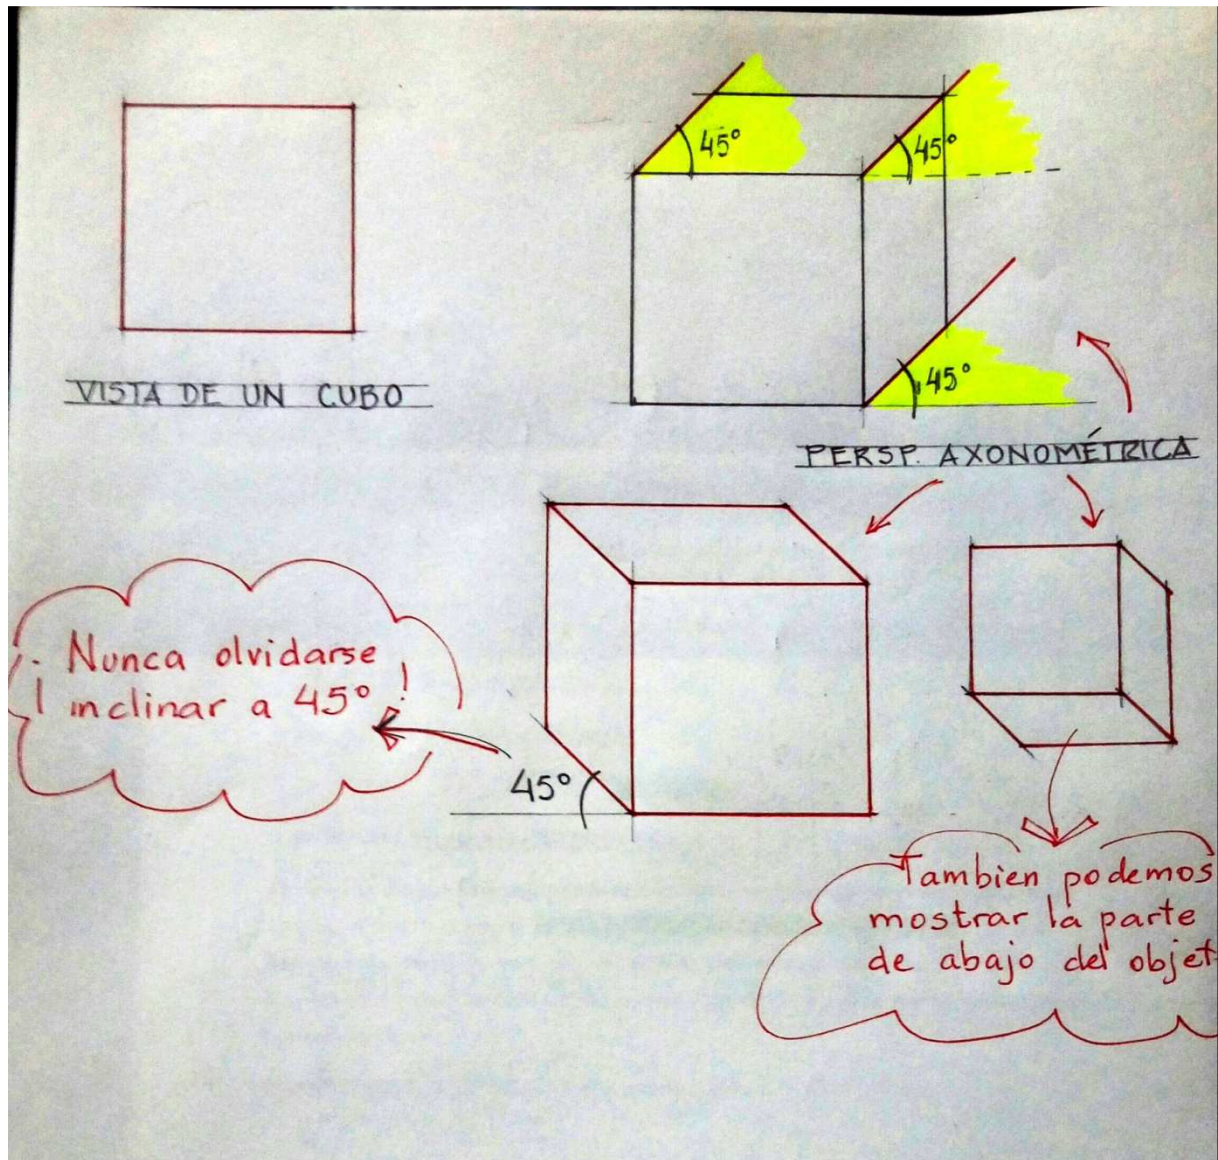 45°
45°
45°
VISTA DE UN CUBO
PERSP. AXONOMÉTRICA
¡ Nunca olvidarse
inclinar a 45° !
45°
Tambien podemos
mostrar la parte
de abajo del objet